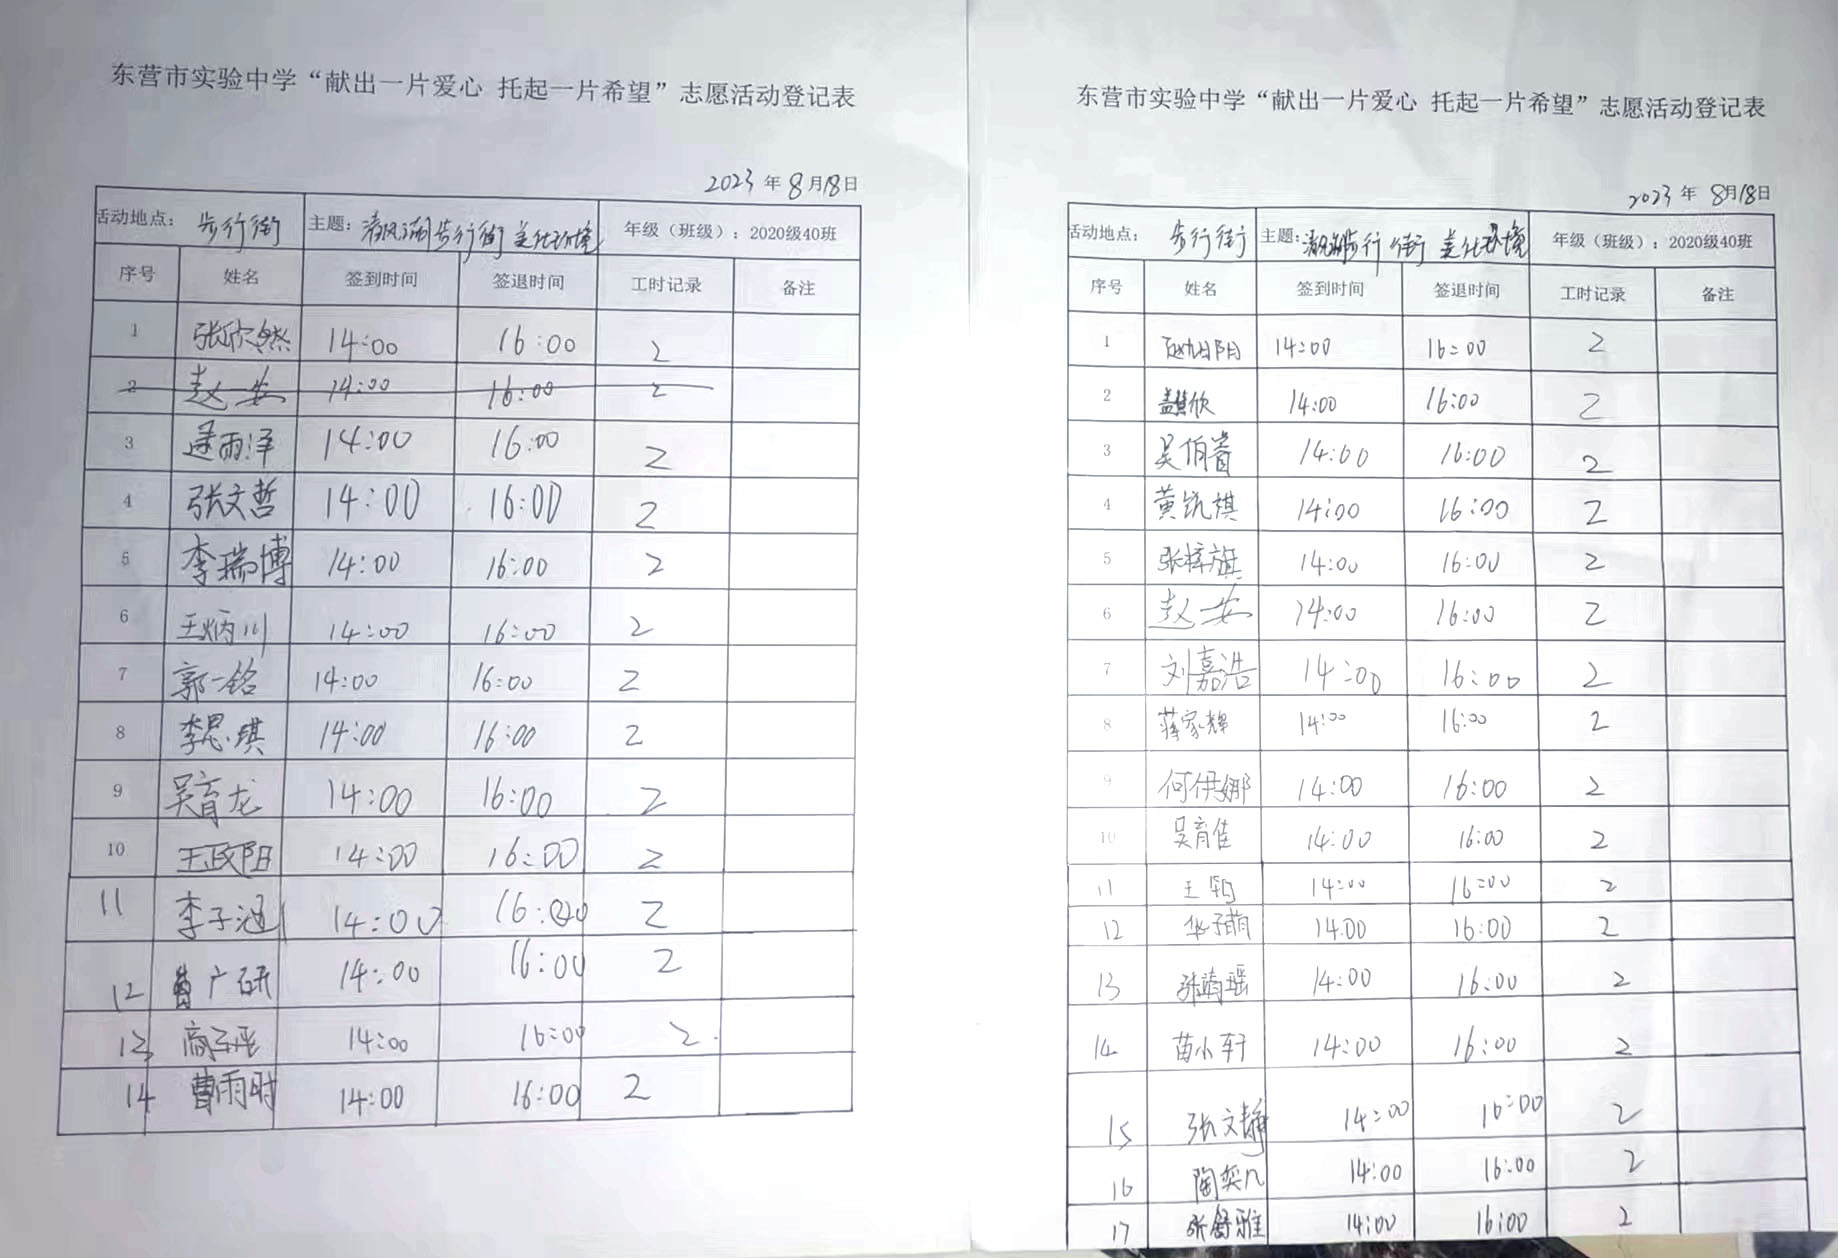 东营市实验中学“献出一片爱心 托起一片希望”志愿活动登记表
2023年8月18日
活动地点： 步行街 主题： 清风湖步行街 美化环境 年级（班级）：2020级40班
序号 姓名 签到时间 签退时间 工时记录 备注
1 张欣然 14:00 16:00 2
2 赵一安 14:00 16:00 2
3 逯雨泽 14:00 16:00 2
4 张文哲 14:00 16:00 2
5 李瑞博 14:00 16:00 2
6 王炳川 14:00 16:00 2
7 郭一铭 14:00 16:00 2
8 李思琪 14:00 16:00 2
9 吴育龙 14:00 16:00 2
10 王政阳 14:00 16:00 2
11 李子涵 14:00 16:00 2
12 曹广研 14:00 16:00 2
13 高 14:00 16:00 2
14 曹雨时 14:00 16:00 2
东营市实验中学“献出一片爱心 托起一片希望”志愿活动登记表
2023年8月18日
活动地点： 步行街 主题： 清风湖步行街 美化环境 年级（班级）：2020级40班
序号 姓名 签到时间 签退时间 工时记录 备注
1 赵旭阳 14:00 16:00 2
2 盖慧欣 14:00 16:00 2
3 吴伯睿 14:00 16:00 2
4 黄凯祺 14:00 16:00 2
5 张梓旗 14:00 16:00 2
6 赵一安 14:00 16:00 2
7 刘嘉浩 14:00 16:00 2
8 蒋家辉 14:00 16:00 2
9 何伊娜 14:00 16:00 2
10 吴育佳 14:00 16:00 2
11 王 14:00 16:00 2
12 华子萌 14:00 16:00 2
13 张靖瑶 14:00 16:00 2
14 苗小轩 14:00 16:00 2
15 张文静 14:00 16:00 2
16 陶奕凡 14:00 16:00 2
17 张舒雅 14:00 16:00 2